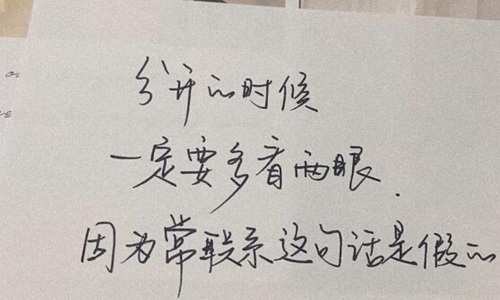 分开的时候
一定要多看两眼.
因为常联系这句话是假的